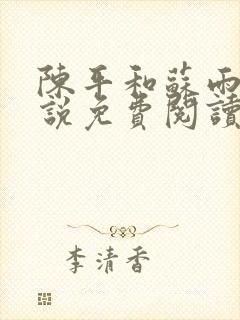 陳平和蘇雨
說免費閱讀
李清香